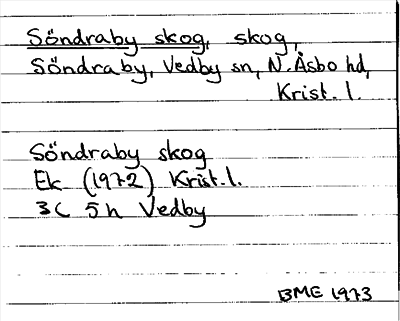 Söndraby skog, skog,
Söndraby, Vedby sn, N. Åsbo hd,
Krist. l.
Söndraby skog
Ek (1972) Krist. l.
3C 5h Vedby
BME 1973